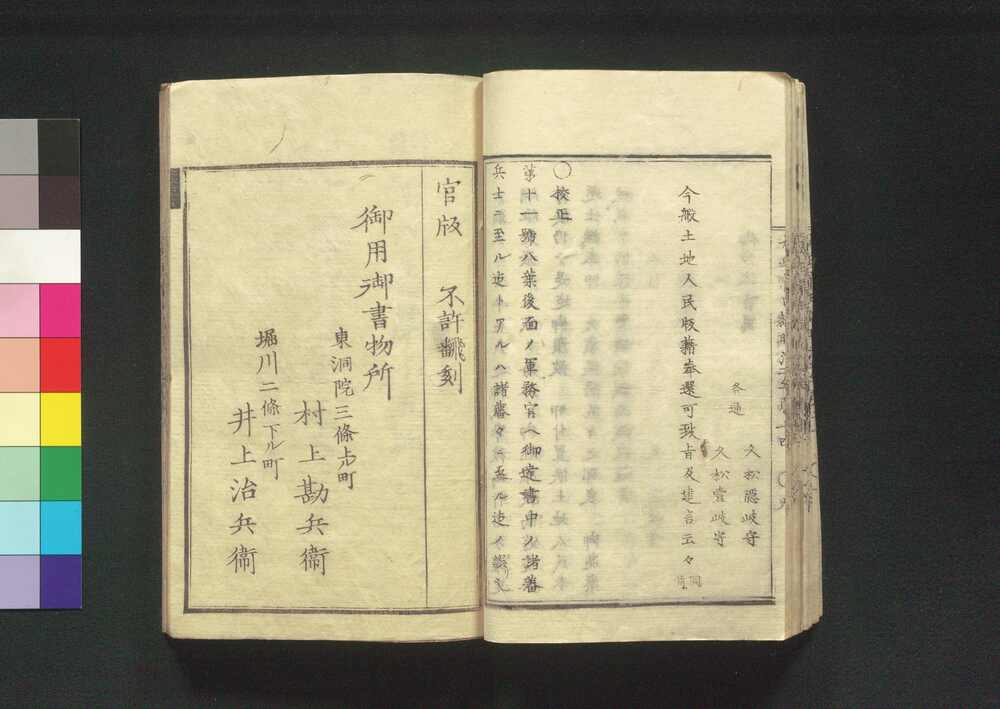 久松隠岐守
久松壹岐守
各通
今般土地人民版籍奉還可致旨及建言云々
同前
〇校正
第十一號八葉後面ノ軍務官ヘ御達書中ノ諸藩
兵士ニ至ル迄トアルハ諸藩々ニ至ル迄ノ誤
官版 不許飜刻
御用御書物所
東洞院三條上ル町
村上勘兵衞
堀川二條下ル町
井上治兵衞